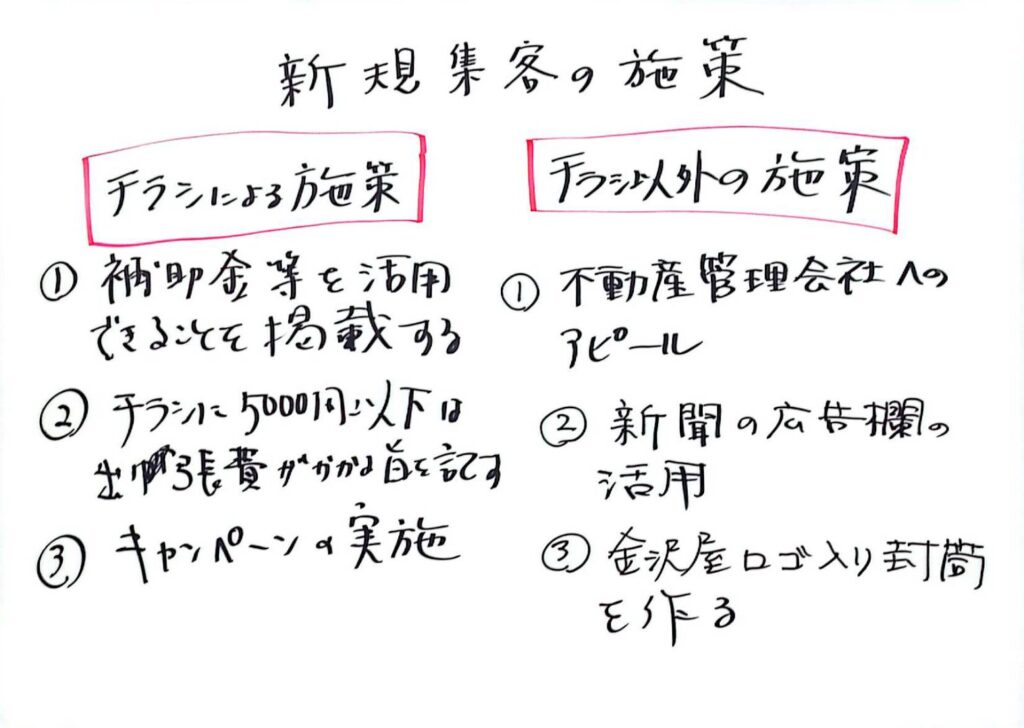 新規集客の施策
チラシによる施策
① 補助金等を活用
できることを掲載する
② チラシに5000円以下は
出張費がかかる旨を記す
③ キャンペーンの実施
チラシ以外の施策
① 不動産管理会社への
アピール
② 新聞の広告欄の
活用
③ 金沢屋ロゴ入り封筒
を作る